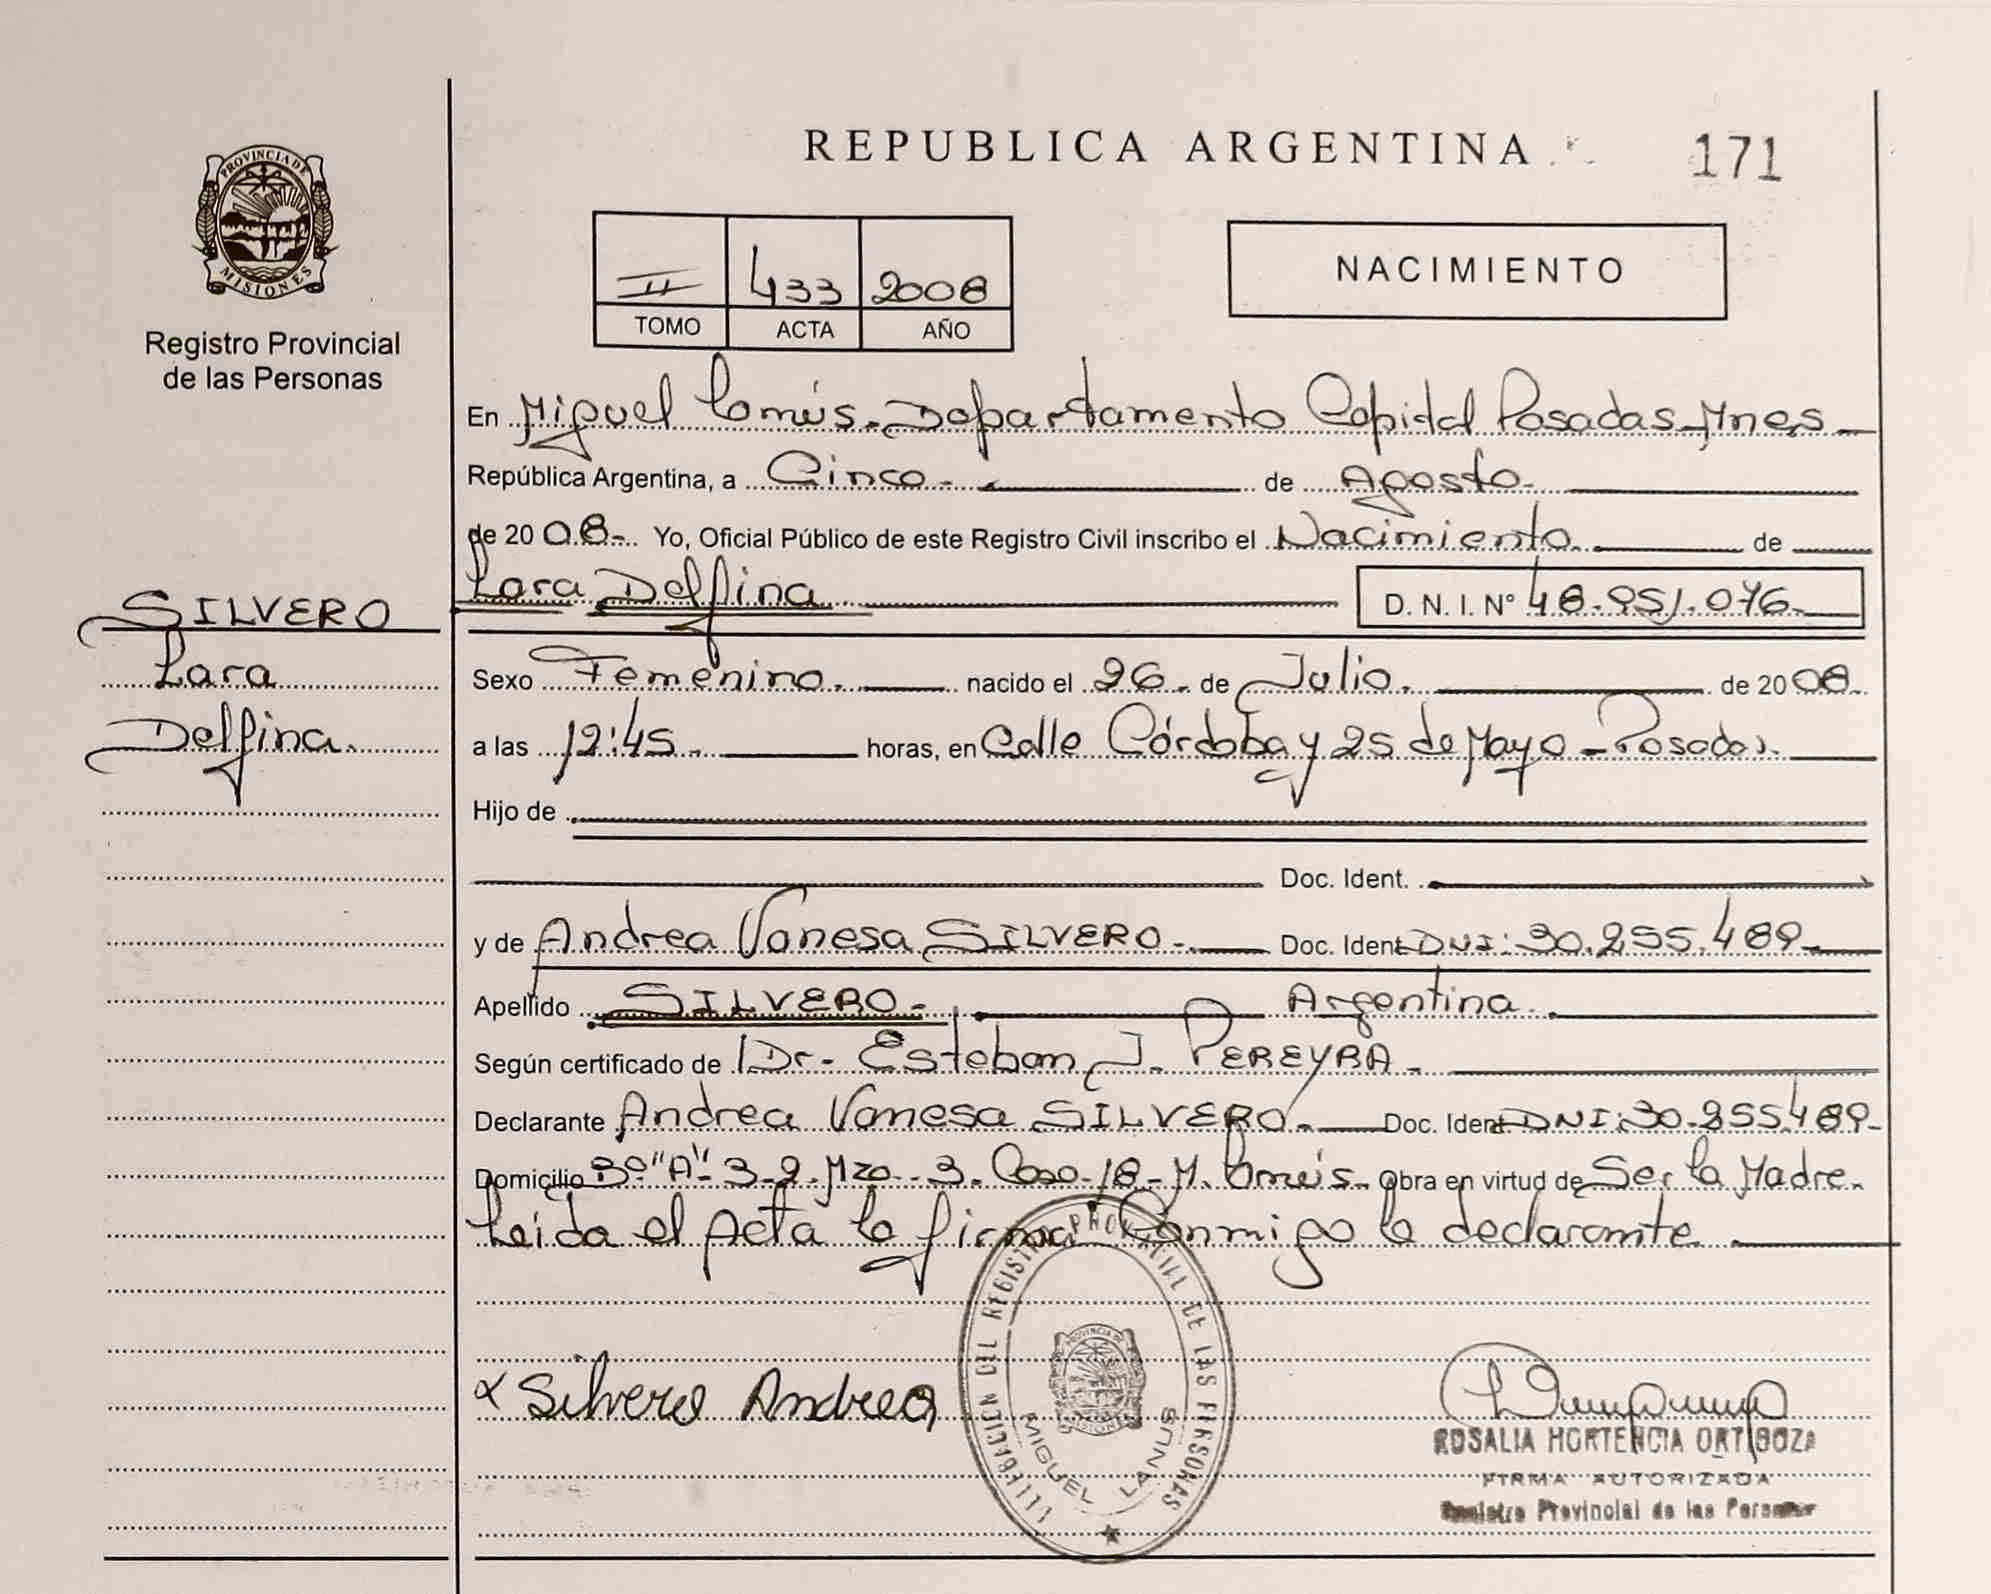 REPUBLICA ARGENTINA
171
PROVINCIA DE
MISIONES
Registro Provincial
de las Personas
II 433 2008
TOMO ACTA AÑO
NACIMIENTO
En Miguel Lanús - Departamento Capital Posadas - Mnes -
República Argentina, a Cinco - de Agosto -
de 20 08 - Yo, Oficial Público de este Registro Civil inscribo el Nacimiento - de
Lara Delfina D. N. I. Nº 48.951.076 -
SILVERO
Lara
Delfina.
Sexo Femenino. nacido el 26 - de Julio. de 20 08.
a las 12:45 - horas, en Calle Córdoba y 25 de Mayo - Posadas.
Hijo de
Doc. Ident.
y de Andrea Vanesa SILVERO - Doc. Ident DNI: 30.255.489 -
Apellido SILVERO - Argentina.
Según certificado de Dr - Esteban J. PEREYRA -
Declarante Andrea Vanesa SILVERO - Doc. Ident DNI: 30.255.489 -
Domicilio 3º "A" - 3-2 Mza - 3 - Casa - 18 - M. Lanús - Obra en virtud de Ser la Madre -
Leida el Acta la firma Conmigo la declarante
Silvero Andrea
DIRECCION DEL REGISTRO PROVINCIAL DE LAS PERSONAS
MIGUEL LANUS
ROSALIA HORTENCIA ORTIGOZA
FIRMA AUTORIZADA
Registro Provincial de las Personas